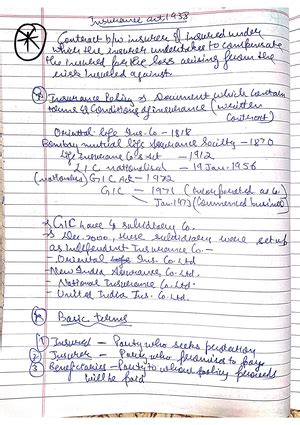 Insurance act 1938
Contract b/w insurer & insured under
which the insurer undertakes to compensate
the insured for the loss arising from the
risk insured against.
Insurance Policy → Document which contain
terms & Conditions of insurance (written
contract)
Oriental life Ins. Co - 1818
Bombay mutual life Assurance Society - 1870
Life Insurance Co's Act - 1912
LIC nationalised - 19 Jan. 1956
(nationalise) GIC Act - 1972
GIC - 1971 (Incorporated as Co.)
Jan. 1973 (Commenced business)
GIC have 4 subsidiary Co.
Dec. 2000, these subsidiary were setup
as Independent Insurance Co. -
- Oriental Life Ins. Co. Ltd
- New India Assurance Co. Ltd.
- National Insurance Co. Ltd.
- United India Ins. Co. Ltd.
Basic terms
1) Insured - Party who seeks protection
2) Insurer - Party who promises to pay
3) Beneficiaries - Party to whom policy proceeds
will be paid